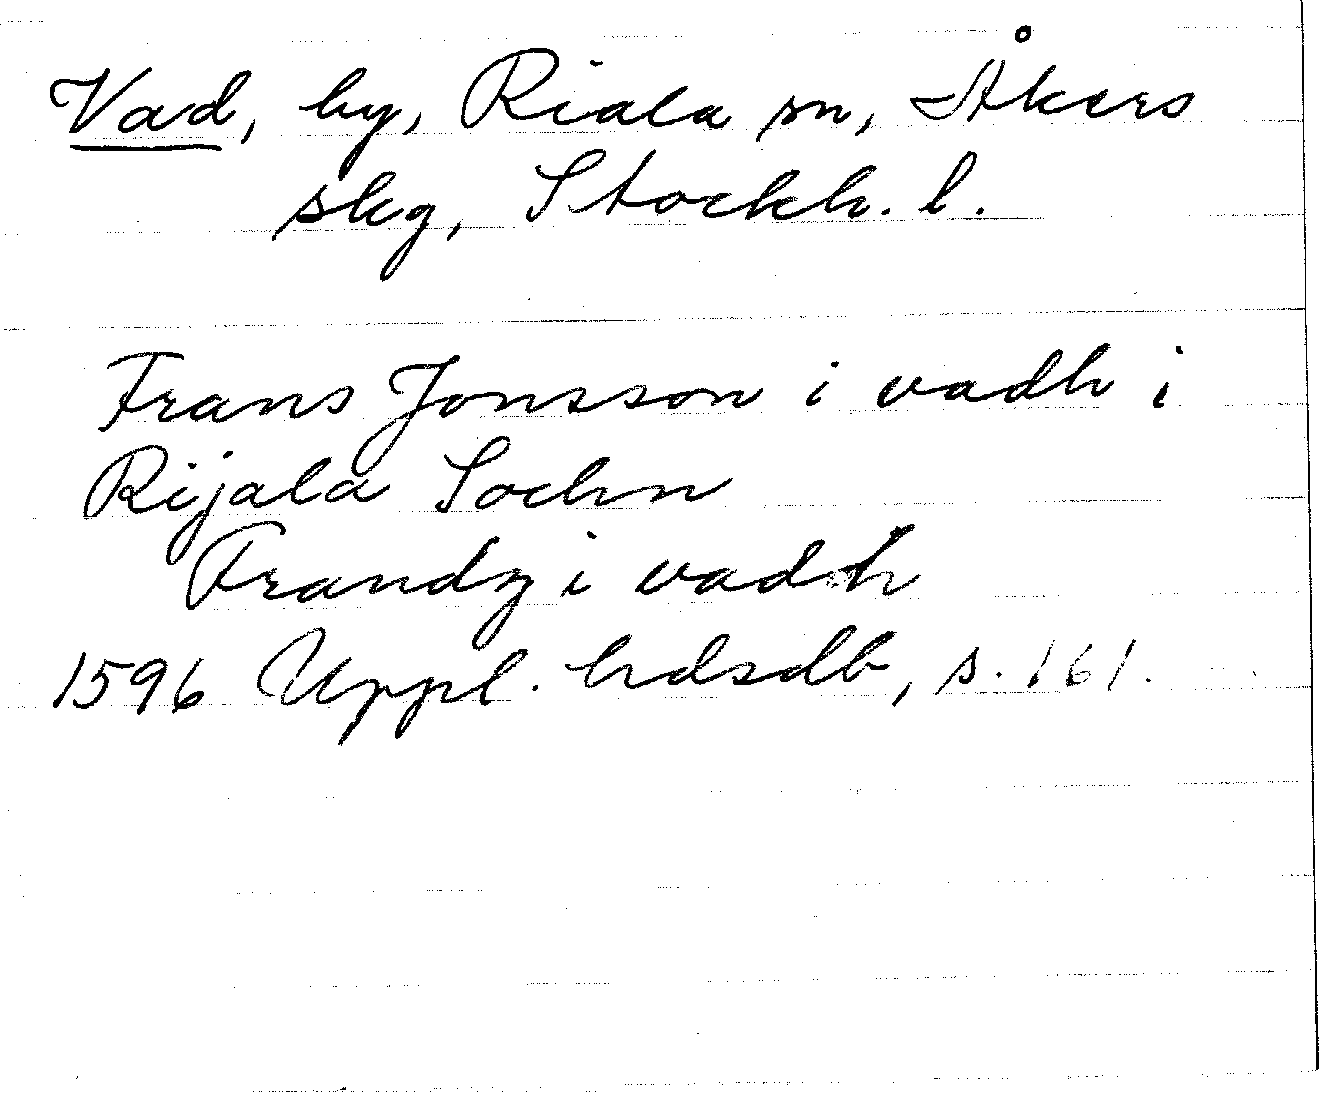 Vad, by, Riala sn, Åkers
skg, Stockh. l.
Frans Jonsson i vadh i
Rijala Sochn
Frandz i vadh
1596 Uppl. hdsdb, s. 161.